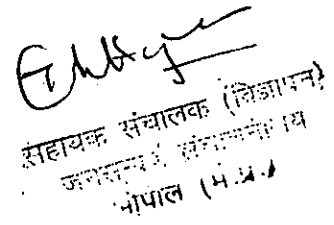 सहायक संचालक (विज्ञापन)
जनसम्पर्क संचालनालय
भोपाल (म.प्र.)